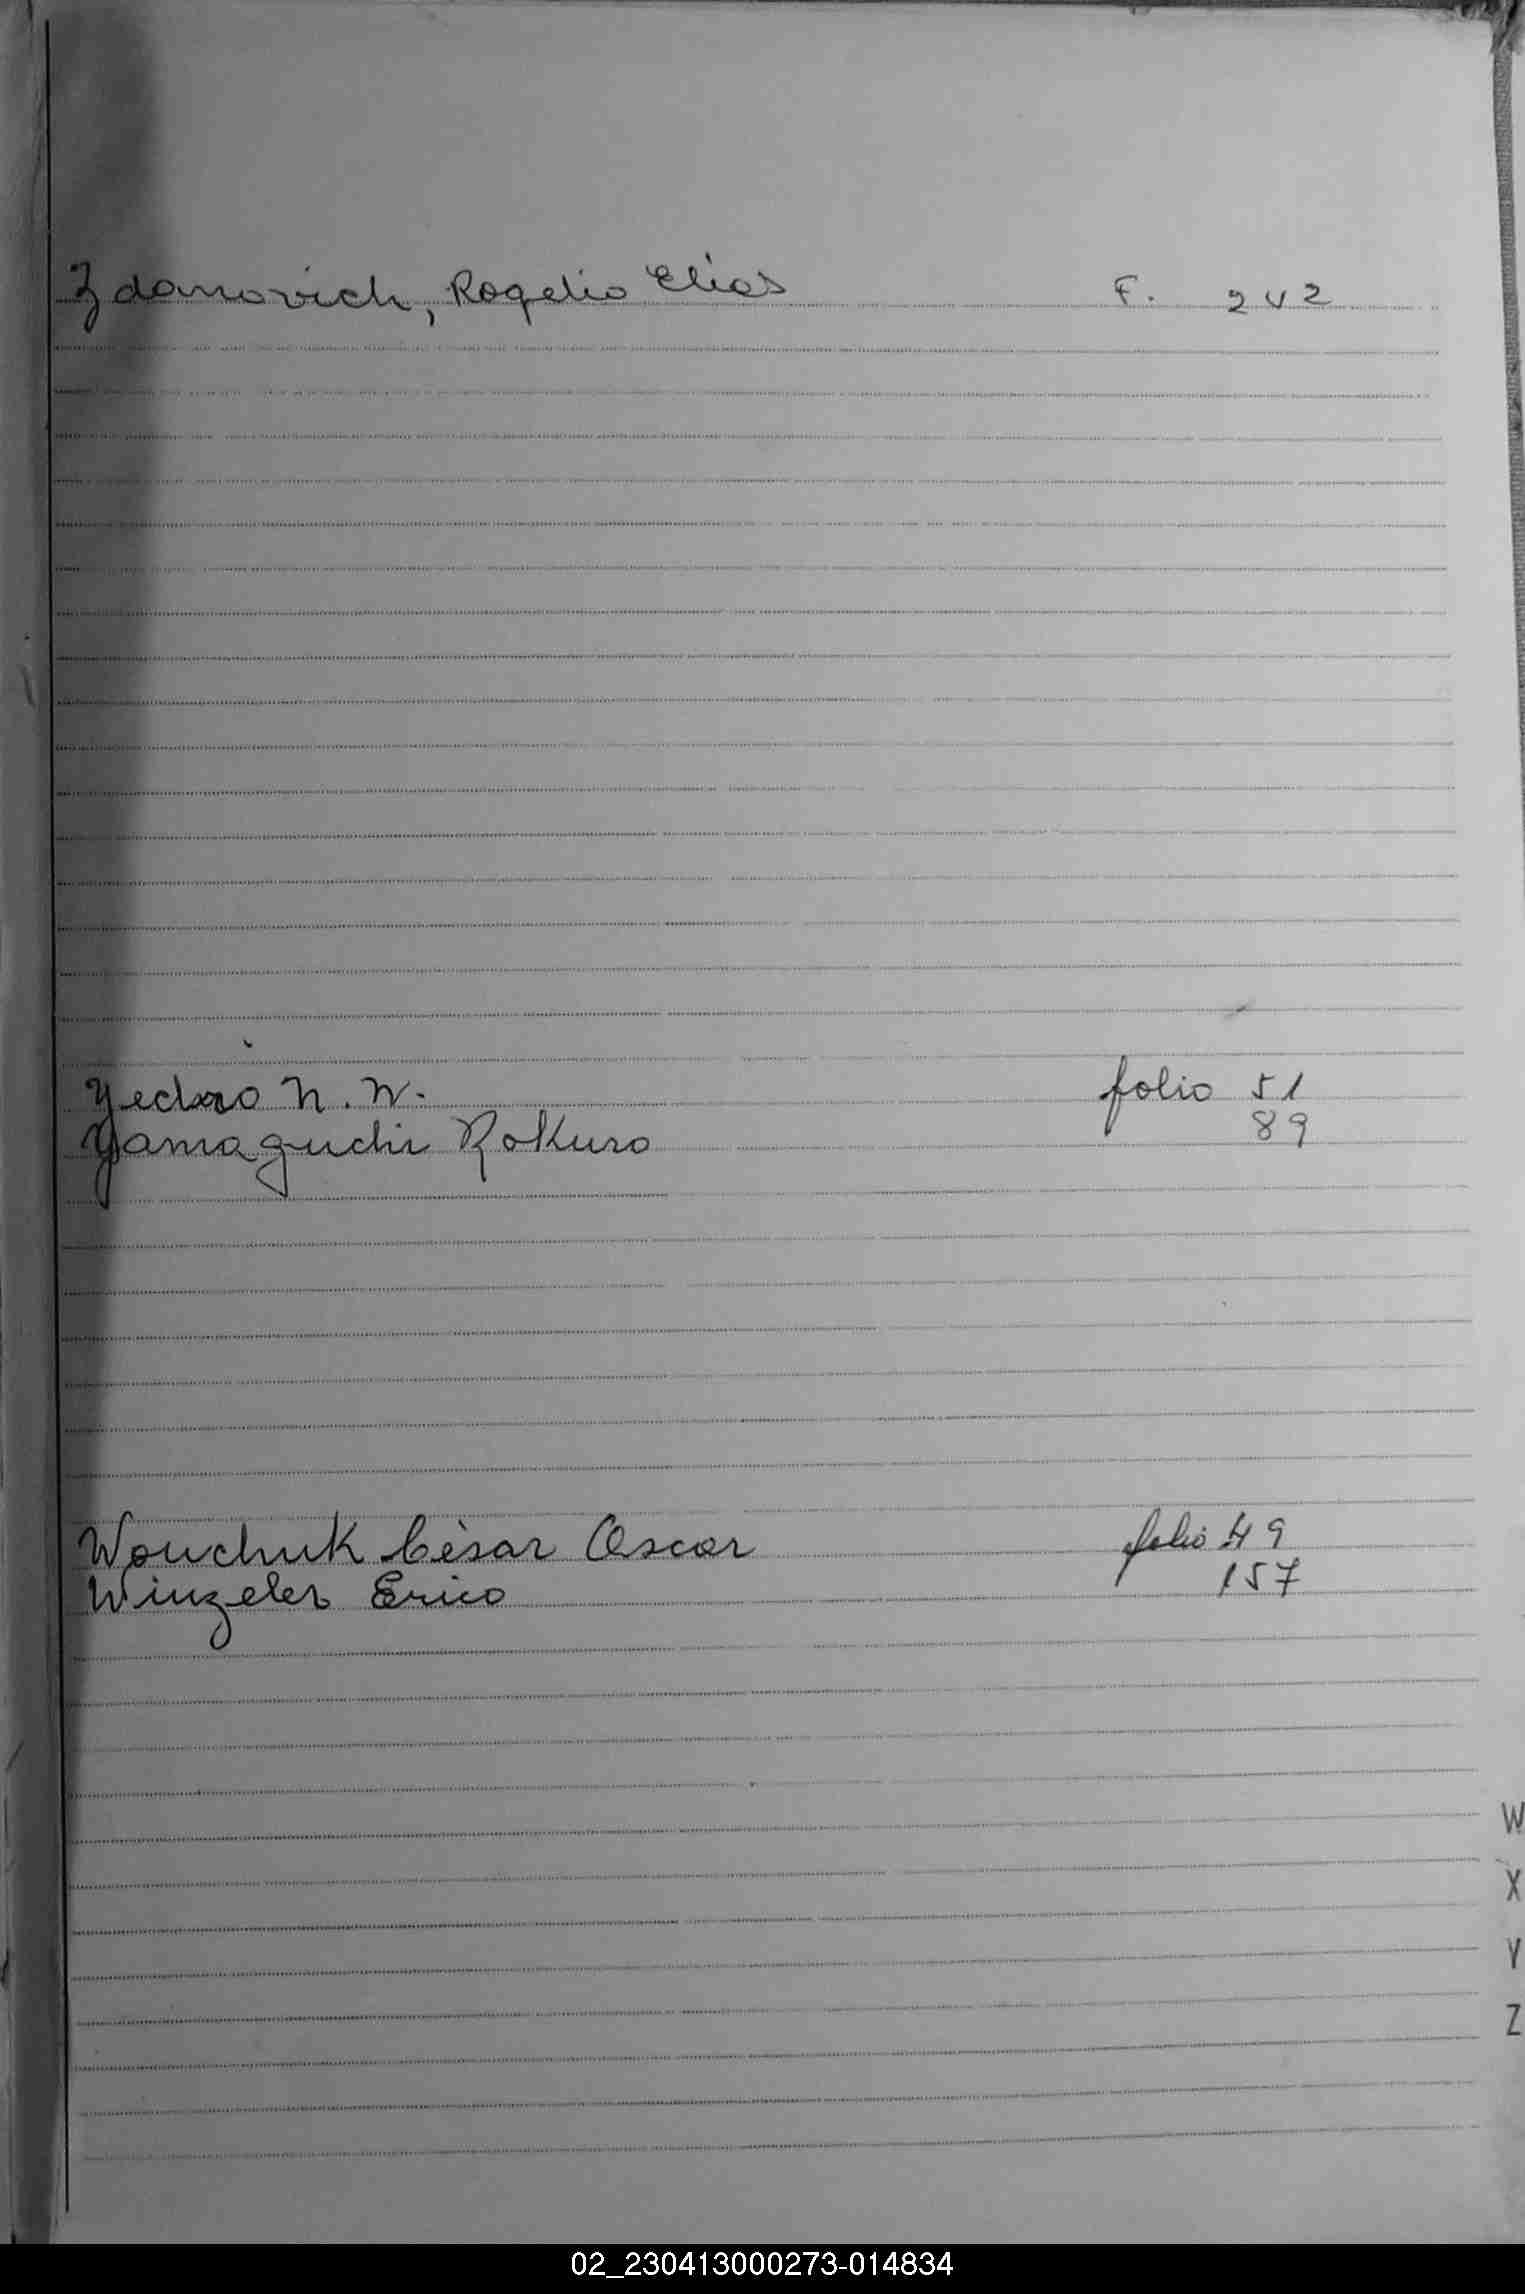 Zdanovich, Rogelio Elias F. 242
Yedro N. W. folio 51
Yamaguchi Rokuro 89
Wouchuk Cèsar Oscar folio 49
Winzeler Erico 157
W
X
Y
Z
02_230413000273-014834